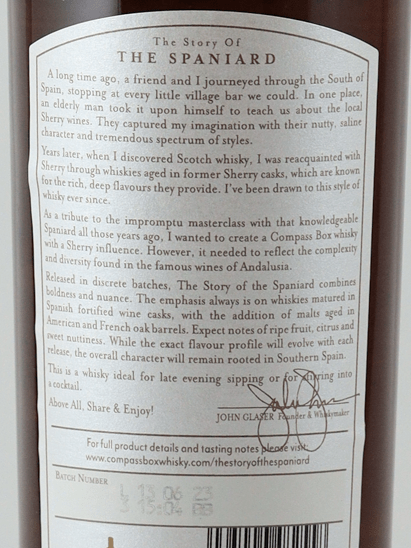 The Story Of
THE SPANIARD
A long time ago, a friend and I journeyed through the South of
Spain, stopping at every little village bar we could. In one place,
an elderly man took it upon himself to teach us about the local
Sherry wines. They captured my imagination with their nutty, saline
character and tremendous spectrum of styles.
Years later, when I discovered Scotch whisky, I was reacquainted with
Sherry through whiskies aged in former Sherry casks, which are known
for the rich, deep flavours they provide. I've been drawn to this style of
whisky ever since.
As a tribute to the impromptu masterclass with that knowledgeable
Spaniard all those years ago, I wanted to create a Compass Box whisky
with a Sherry influence. However, it needed to reflect the complexity
and diversity found in the famous wines of Andalusia.
Released in discrete batches, The Story of the Spaniard combines
boldness and nuance. The emphasis always is on whiskies matured in
Spanish fortified wine casks, with the addition of malts aged in
American and French oak barrels. Expect notes of ripe fruit, citrus and
sweet nuttiness. While the exact flavour profile will evolve with each
release, the overall character will remain rooted in Southern Spain.
This is a whisky ideal for late evening sipping or for sharing into
a cocktail.
Above All, Share & Enjoy!
JOHN GLASER Founder & Whiskymaker
For full product details and tasting notes please visit:
www.compassboxwhisky.com/thestoryofthespaniard
BATCH NUMBER
L 13 06 23
3 15:04 BB